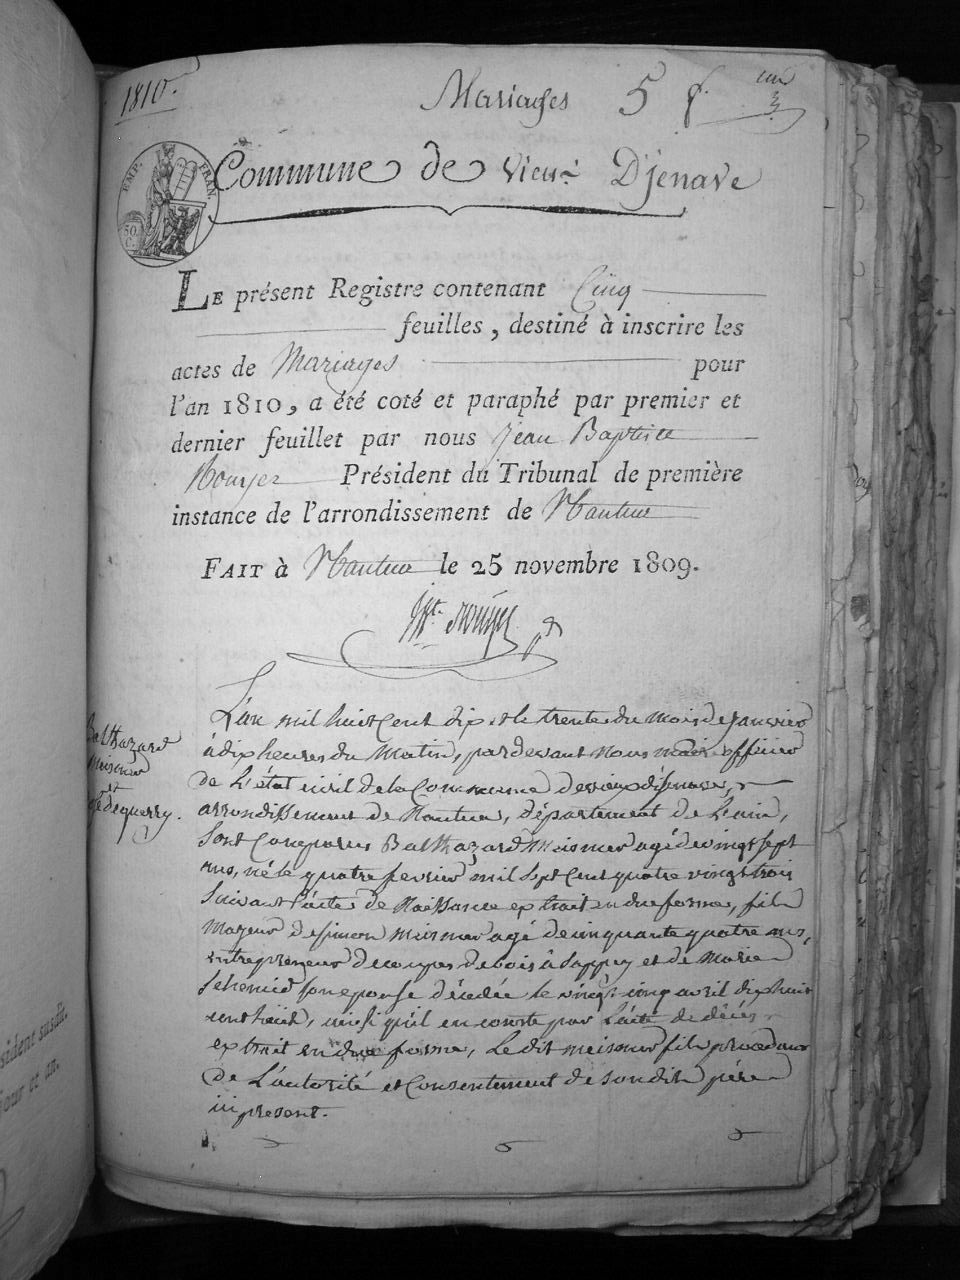 1810.
Mariages 5 f.
un
3
EMP. FRAN.
50
C.
Commune de Vieux D'jenave
LE présent Registre contenant Cinq
feuilles, destiné à inscrire les
actes de Mariages pour
l'an 1810, a été coté et paraphé par premier et
dernier feuillet par nous Jean Baptiste
Rouyer Président du Tribunal de première
instance de l'arrondissement de Nantua
FAIT à Nantua le 25 novembre 1809.
Balthazard
Meisner
et
dequerry.
L'an mil huit Cent dix et le trente du Mois de Janvier
à dix heures du Matin, pardevant nous maire officier
de L'état civil de la Commune de vieux d'isenave,
arrondissement de Nantua, département de L'ain,
Sont Comparus Balthazard Meisner agé de vingt sept
ans, né le quatre fevrier mil Sept Cent quatre vingt trois
Suivant l'acte de Naissance extrait en due forme, fils
Majeur de simon Meisner agé de cinquante quatre ans,
entrepreneur de coupes de bois à Sappey et de Marie
son epouse décédée le vingt cinq avril dix huit
cent huit, ainsi qu'il en conste par L'acte de décès
extrait en due forme, Le dit meisner fils procedant
de L'autorité et Consentement de son dit père
ici present.
sident susdit.
jour et an.